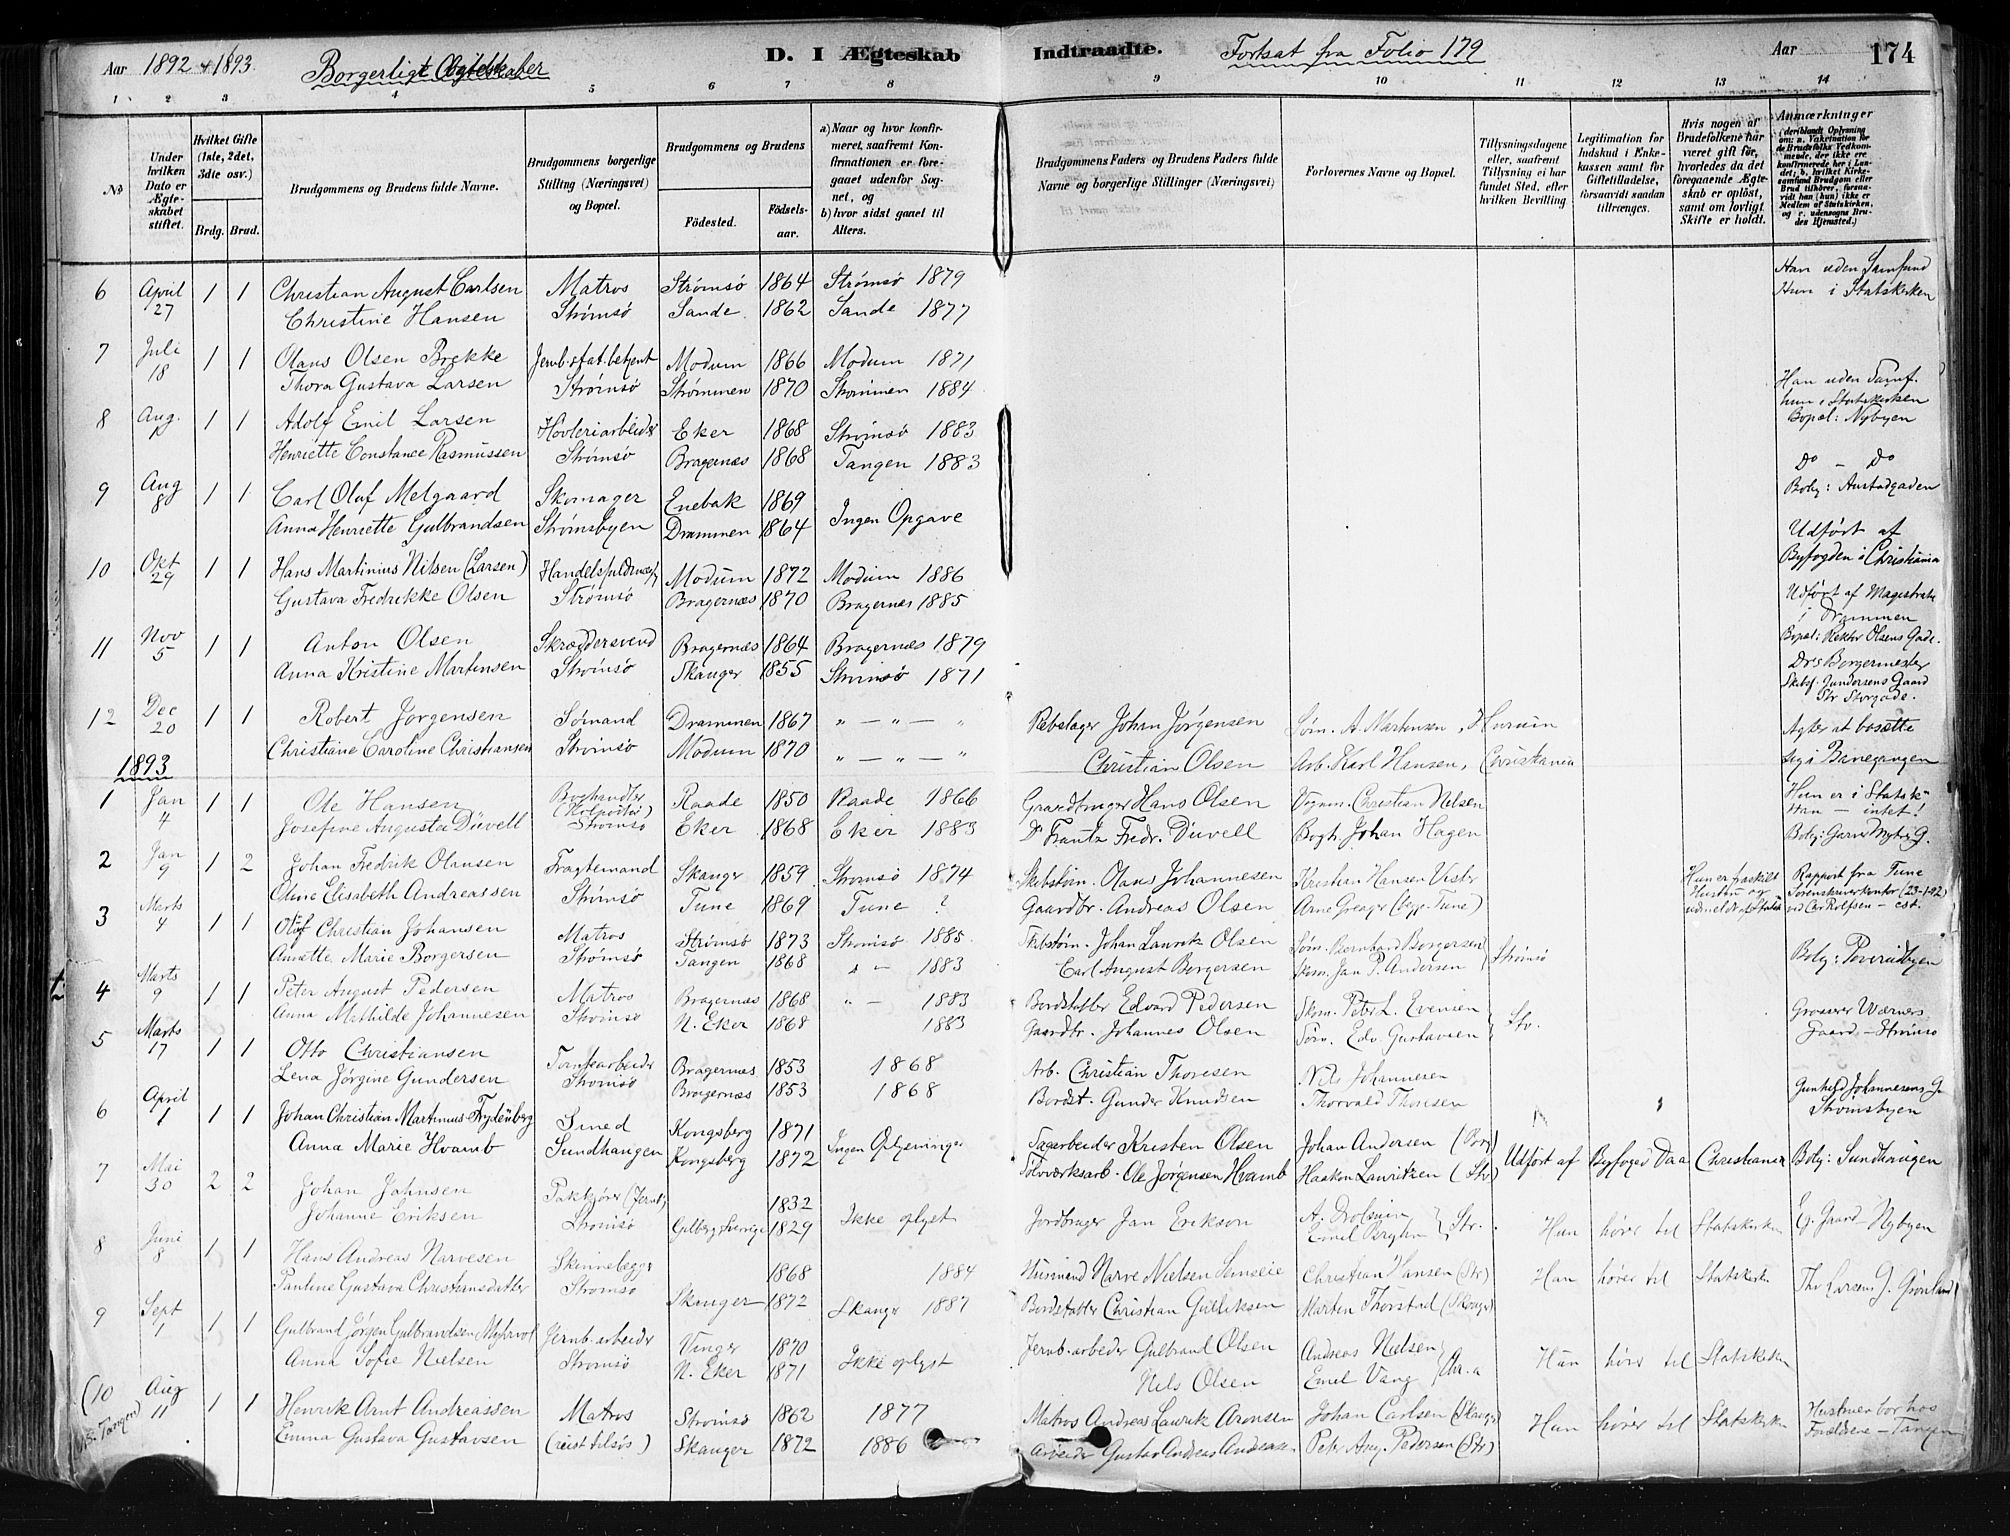 Aar 1892 & 1893. Borgerlige Ægteskaber D. I Ægteskab Indtraadte. Fortsat fra Folio 179 Aar 174
1 2 3 4 5 6 7 8 9 10 11 12 13 14
No
Under hvilken Dato er Ægteskabet stiftet.
Hvilket Gifte (1ste, 2det, 3die osv.)
Brdg. Brud.
Brudgommens og Brudens fulde Navne.
Brudgommens borgerlige Stilling (Næringsvei) og Bopæl.
Brudgommens og Brudens
Födested. Födsels-aar.
a) Naar og hvor konfirmeret, saafremt Konfirmationen er foregaaet udenfor Sognet, og
b) hvor sidst gaaet til Alters.
Brudgommens Faders og Brudens Faders fulde Navne og borgerlige Stillinger (Næringsvei)
Forlovernes Navne og Bopæl.
Tillysningsdagene eller, saafremt Tillysning ei har fundet Sted, efter hvilken Bevilling
Legitimation for Indskud i Enkekassen samt for Giftetilladelse, forsaavidt saadan tiltrænges.
Hvis nogen af Brudefolkene har været gift før, hvorledes da det foregaaende Ægteskab er opløst, samt om lovligt Skifte er holdt.
Anmærkninger
6 April 27 1 1 Christian August Carlsen Matros Strømsø 1864 Strømsø 1879 Han uden Samfund
Christine Hansen Strømsø Sande 1862 Sande 1877 Hun i Statskirken
7 Juli 18 1 1 Olaus Olsen Brekke Jernb.stat.betjent Modum 1866 Modum 1871
Thora Gustava Larsen Strømsø Strømmen 1870 Strømmen 1884 Han uden Samf. hun i Statskirken
8 Aug. 1 1 Adolf Emil Larsen Høvleriarbeider Eker 1868 Strømsø 1883 Bopæl: Nybyen
Henriette Constance Rasmussen Strømsø Bragernæs 1868 Tangen 1883 Do - Do
9 Aug 8 1 1 Carl Oluf Melgaard Skomager Enebak 1869 Ingen Opgave Bolig: Austadgaden
Anna Henriette Gulbrandsen Strømsbyen Drammen 1864 Udført af
10 Okt 29 1 1 Hans Martinius Nilsen (Larsen) Modum 1872 Modum 1886 Byfogden i Christiania
Gustava Fredrikke Olsen Strømsø Bragernæs 1870 Bragernæs 1885 Udført af Magistraten i Drammen
11 Nov 5 1 1 Anton Olsen Skræddersvend Bragernæs 1864 Bragernæs 1879 Bopæl: Rektor Olsens Gade.
Anna Kristine Martinsen Strømsø Skauger 1855 Strømsø 1871 Drs Borgermester
Gundersens Gaard Str Storgade.
12 Dec 20 1 1 Robert Jørgensen Sømand Drammen 1867 " — " — " Rebslager Johan Jørgensen Søm. A. Martinsen, Hurum Agter at bosætte
Christiane Caroline Christiansen Strømsø Modum 1870 " — " — " Christian Olsen Arb. Karl Hansen, Christiania sig i Banegangen
1893
1 Jan 4 1 1 Ole Hansen Boghandler (Kolportør) Raade 1850 Raade 1866 Gaardbruger Hans Olsen Vognm. Christian Nilsen Hun er i Statsk.
Josefine Augusta Düvell Strømsø Eker 1868 Eker 1883 Do Frantz Fredr. Düvell Bogh. Johan Hagen Han — intet!
2 Jan 9 1 2 Johan Fredrik Olausen Fragtemand Skauger 1859 Strømsø 1874 Skibstøm. Olaus Johannesen Kristian Hansen Hun er fraskilt Rapport fra Tune
Oline Elisabeth Andreassen Strømsø Tune 1869 Tune ? Gaardbr. Andreas Olsen Arne Greager (begge Tune) Sorenskriverkontor (23-1-92)
3 Marts 4 1 1 Oluf Christian Johansen Matros Strømsø 1873 Strømsø 1885 Skibstøm. Johan Lauritz Olsen Søm. Bernhard Borgersen Strømsø
Annette Marie Borgersen Strømsø Tangen 1868 " — 1883 Carl August Borgersen Skom. Jan P. Andersen
4 Marts 9 1 1 Peter August Pedersen Matros Bragernæs 1868 " — 1883 Bordstabler Edvard Pedersen Skom. Peter L. Evensen Str. Grosserer Wærners
Anna Mathilde Johannesen Strømsø N. Eker 1868 1883 Gaardbr. Johannes Olsen Søm. Edv. Gustavsen Gaard - Strømsø
5 Marts 17 1 1 Otto Christiansen Tomtearbeider Bragernæs 1853 1868 Arb. Christian Thoresen Nils Johannesen
Lena Jørgine Gundersen Strømsø Bragernæs 1853 1868 Bordst. Gunder Knudsen Thorvald Thoresen Gunhild Johannesens G. Strømsbyen
6 April 1 1 1 Johan Christian Martinius Frydenberg Smed Kongsberg 1871 Ingen Oplysninger Dagarbeider Kristen Olsen Johan Andersen (Brag)
Anna Marie Hvamb Sundhaugen Kongsberg 1872 Sølvværksarb. Ole Jørgensen Hvamb Haakon Lauritzen (Str) Udført af Byfoged Daa Christiania Bolig: Sundhaugen
7 Mai 30 2 2 Johan Jahnsen 1832
Johanne Eriksen Strømsø Gulberg Sverige 1829 Ikke oplyst Jordbruger Jan Erikson Emil Bergh Str. Hun hører til Statskirken Nybyen
8 Juni 8 1 1 Hans Andreas Narvesen Skinnelægger 1868 1884 Husmand Narve Nielsen Christian Hansen (Str) Han hører til Statskirken
Pauline Gustava Christiansdatter Strømsø Skauger 1872 Skauger 1887 Bordstabler Christian Gulliksen Marten Thorstad (Skauger)
9 Sept 1 1 1 Gulbrand Jørgen Gulbrandsen Myhrvol Jernb.arbeider Vinger 1870 Ikke oplyst Jernb.arbeider Gulbrand Olsen Andreas Nielsen Chr.a Hun hører til Statskirken
Anna Sofie Nielsen Strømsø N. Eker 1871 Nils Olsen Emil Vang
(10 Aug 11 1 1 Henrik Arnt Andreassen Matros Strømsø 1862 1877 Matros Andreas Laurik Aronsen Johan Carlsen (Skauger) Hun hører til Statskirken Hustruen bor hos
Tangen) Emma Gustava Gustavsen Skauger 1872 1886 Arbeider Gustav Andreas Peter Aug. Pedersen (Str) Forældrene - Tangen